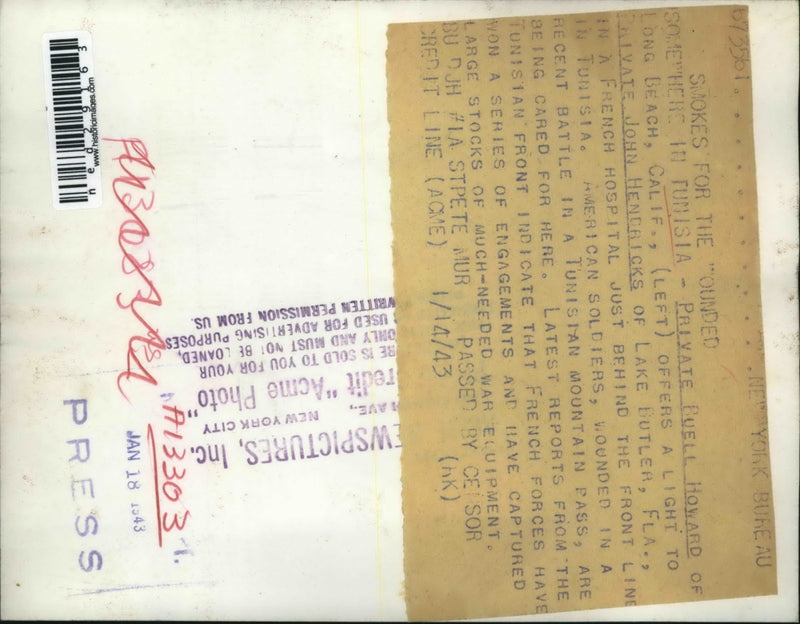 673561 . . . . . . . . . . . . . . NEW YORK BUREAU
SMOKES FOR THE WOUNDED
SOMEWHERE IN TUNISIA - PRIVATE RUELL HOWARD OF
LONG BEACH, CALIF., (LEFT) OFFERS A LIGHT TO
PRIVATE JOHN HENDRICKS OF LAKE BUTLER, FLA.,
IN A FRENCH HOSPITAL JUST BEHIND THE FRONT LINE
IN TUNISIA. AMERICAN SOLDIERS, WOUNDED IN A
RECENT BATTLE IN A TUNISIAN MOUNTAIN PASS, ARE
BEING CARED FOR HERE. LATEST REPORTS FROM THE
TUNISIAN FRONT INDICATE THAT FRENCH FORCES HAVE
WON A SERIES OF ENGAGEMENTS AND HAVE CAPTURED
LARGE STOCKS OF MUCH-NEEDED WAR EQUIPMENT.
BU DJH #1A STPETE MUR PASSED BY CENSOR
CREDIT LINE (ACME) 1/14/43 (HK)
EWSPICTURES, Inc.
AVE., NEW YORK CITY
redit "Acme Photo"
RE IS SOLD TO YOU FOR YOUR
ONLY AND MUST NOT BE LOANED,
USED FOR ADVERTISING PURPOSES
WRITTEN PERMISSION FROM US.
www.historicimages.com
ned29163
A13303
JAN 18 1943
PRESS